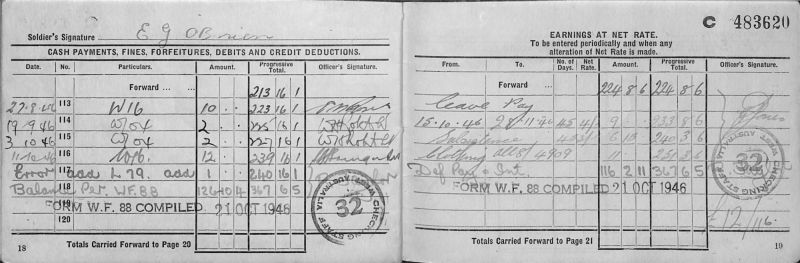 Soldier's Signature E G O'Brien
CASH PAYMENTS, FINES, FORFEITURES, DEBITS AND CREDIT DEDUCTIONS.
Date. No. Particulars. Amount. Progressive Total. Officer's Signature.
Forward ... ... 213 16 1
27.8.46 113 W16 10 .. .. 223 16 1
19.9.46 114 2 .. .. 225 16 1
3.10.46 115 2 .. .. 227 16 1
11.10.46 116 12 .. .. 239 16 1
Error add L 79. add 117 1 .. .. 240 16 1
Balance Per. W.F. 88 118 126 10 4 367 6 5
119 FORM W.F. 88 COMPILED 21 OCT 1946
120
CHECKING STAFF WEST AUSTRALIA
32
Totals Carried Forward to Page 20
18
C 483620
EARNINGS AT NET RATE.
To be entered periodically and when any
alteration of Net Rate is made.
From. To. No. of Days. Net Rate. Amount. Progressive Total. Officer's Signature.
Forward 224 8 6 224 8 6
Leave Pay
15.10.46 28.11.46 45 4/- 9 233 8 6
Subsistence 240 3 6
Clothing 11 251 3 6
Def Pay + Int. 116 2 11 367 6 5
FORM W.F. 88 COMPILED 21 OCT 1946
CHECKING STAFF WEST AUSTRALIA
32
Totals Carried Forward to Page 21
19